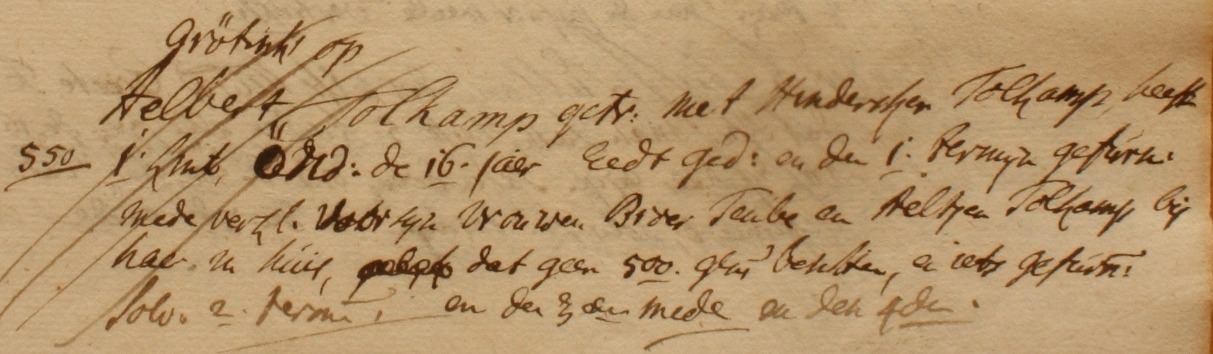 Grötink op
Aelbert Tolkamp getr: met Hinderskjen Tolkamp, heeft
550 1. kint, oud: de 16. jaer Eedt ged: en den 1. termyn gefurn:
mede verkl. voor syn vrouwen Broer Teube en Aeltjen Tolkamp by
haer in huis, dat geen 500. gl: besitten, en iets gefurn:
Solv. 2. termn. en den 3 den mede en den 4den.